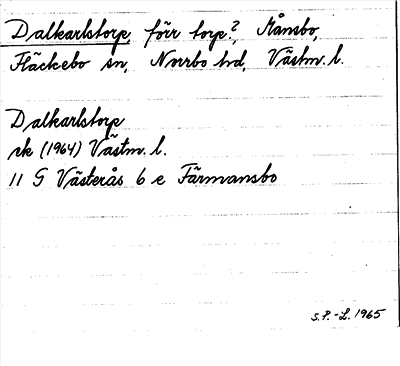 Dalkarlstorp, förr torp?, Månsbo,
Fläckebo sn, Norrbo hd, Västm. l.
Dalkarlstorp
rk (1964) Västm. l.
11 G Västerås 6 e Färmansbo
S.P.-L. 1965